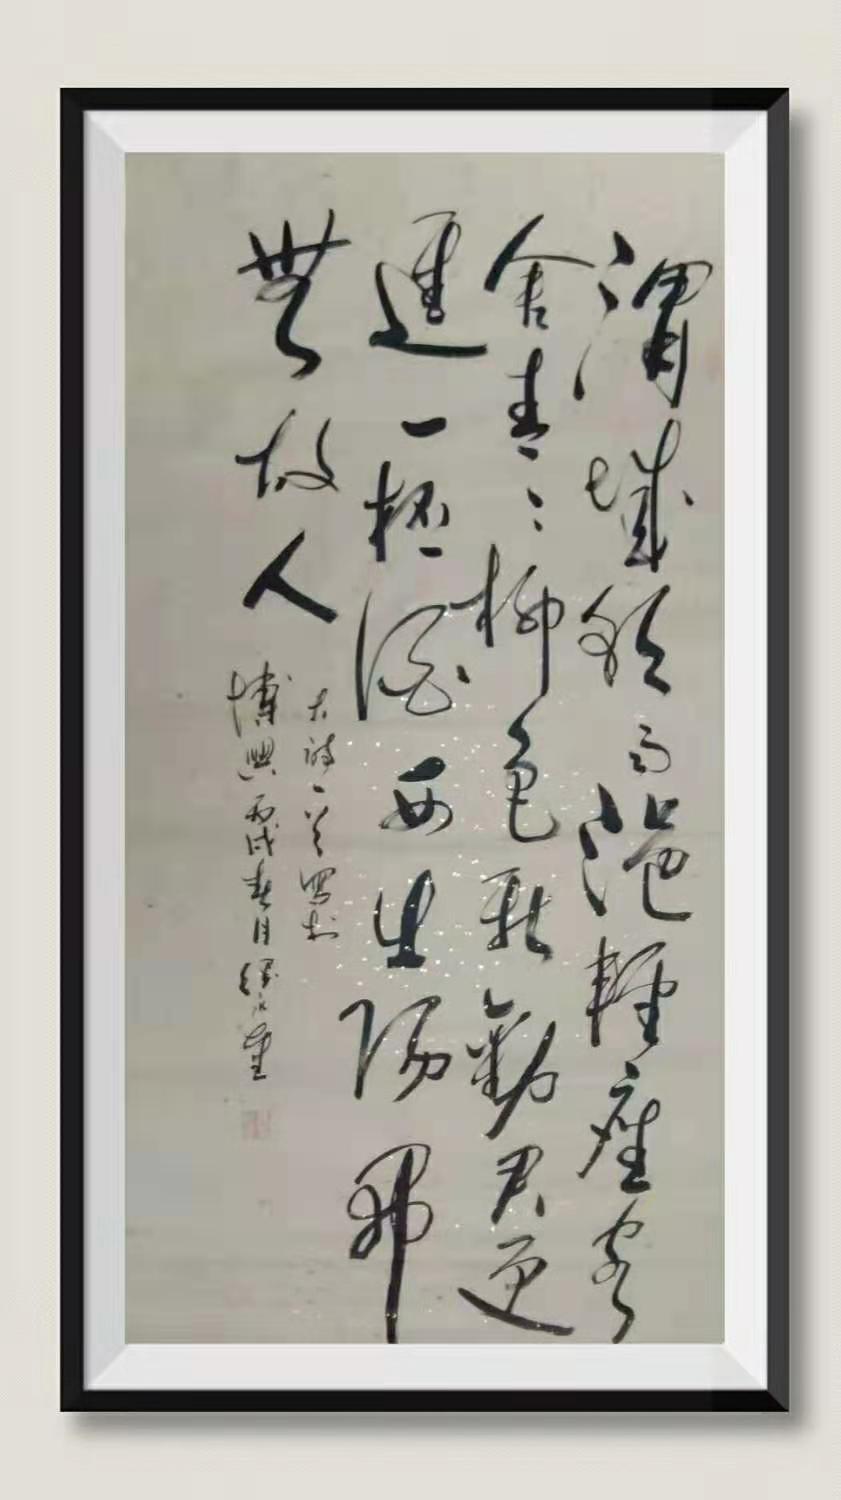 渭城朝雨浥輕塵客
舍青〻柳色新勸君更
進一杯酒西出陽關
無故人
詩一首寫於
博興丙戌春月